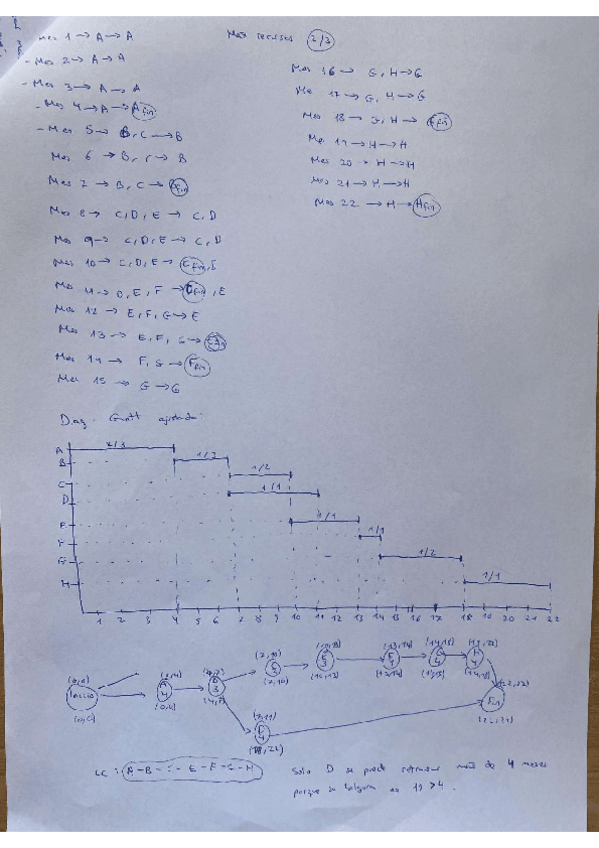 Mes 1 → A → A
- Mes 2 → A → A
- Mes 3 → A → A
- Mes 4 → A → A fin
- Mes 5 → B, C → B
Mes 6 → B, C → B
Mes 7 → B, C →
Mes 8 → C, D, E → C, D
Mes 9 → C, D, E → C, D
Mes 10 → C, D, E → C fin,
Mes 11 → D, E, F → D fin, E
Mes 12 → E, F, G → E
Mes 13 → E, F, G →
Mes 14 → F, G → F fin
Mes 15 → G → G
Max recursos 2/3
Mes 16 → G, H → G
Mes 17 → G, H → G
Mes 18 → G, H → G fin
Mes 19 → H → H
Mes 20 → H → H
Mes 21 → H → H
Mes 22 → H → H fin
Diag. Gantt ajustado:
A 2/3
B 1/2
C 1/2
D 1/1
E 1/1
F 1/1
G 1/2
H 1/1
1 2 3 4 5 6 7 8 9 10 11 12 13 14 15 16 17 18 19 20 21 22
(0,0) (0,4) (4,7) (7,10) (10,13) (13,14) (14,18) (18,22)
Inicio A 4 B 3 C 3 E 3 F 1 G 4 H 4
(0,0) (0,4) (4,7) (7,10) (10,13) (13,14) (14,18) (18,22)
(7,11) (22,22)
D 4 Fin
(18,22) (22,22)
LC: A-B-C-E-F-G-H
Solo D se puede retrasar más de 4 meses
porque su holgura es 11 > 4.